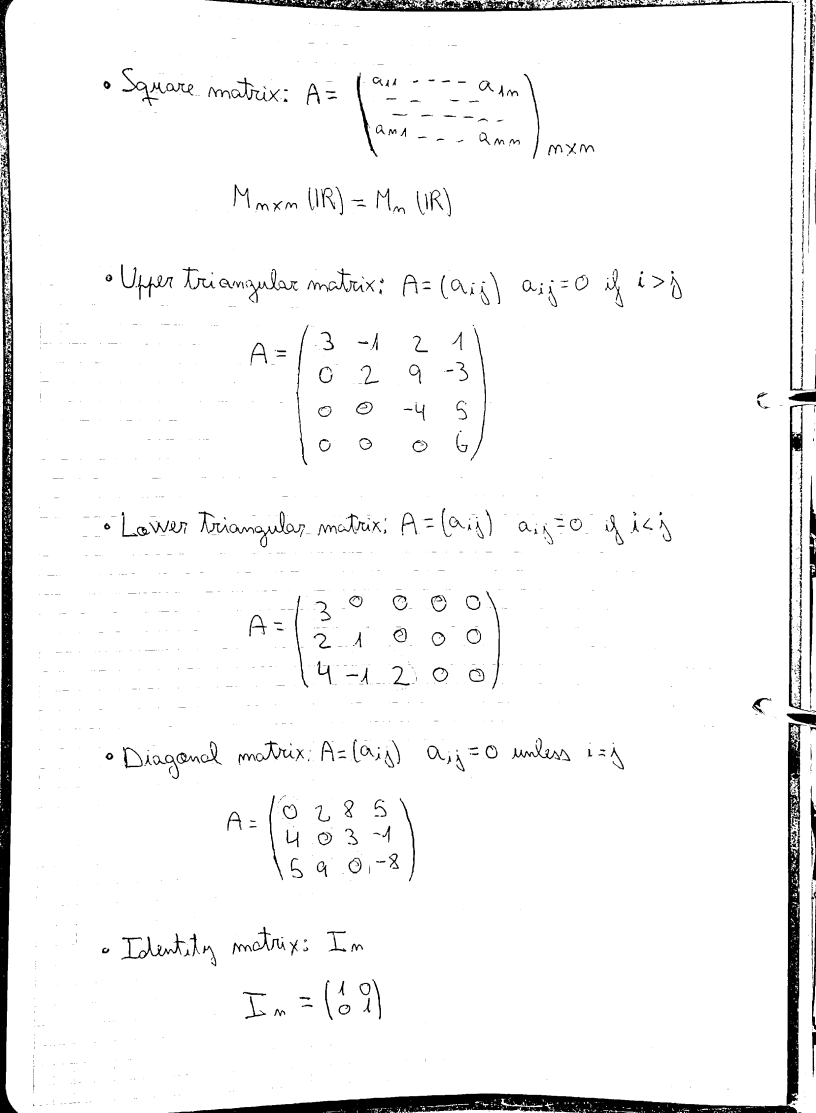 • Square matrix: A = (a11 ---- a1n
-- --
------
an1 --- ann) n×n
Mn×n (IR) = Mn (IR)
• Upper triangular matrix: A = (aij) aij = 0 if i > j
A = (3 -1 2 1
0 2 9 -3
0 0 -4 5
0 0 0 6)
• Lower triangular matrix: A = (aij) aij = 0 if i < j
A = (3 0 0 0 0
2 1 0 0 0
4 -1 2 0 0)
• Diagonal matrix: A = (aij) aij = 0 unless i = j
A = (0 2 8 5
4 0 3 -1
5 9 0 -8)
• Identity matrix: In
In = (1 0
0 1)